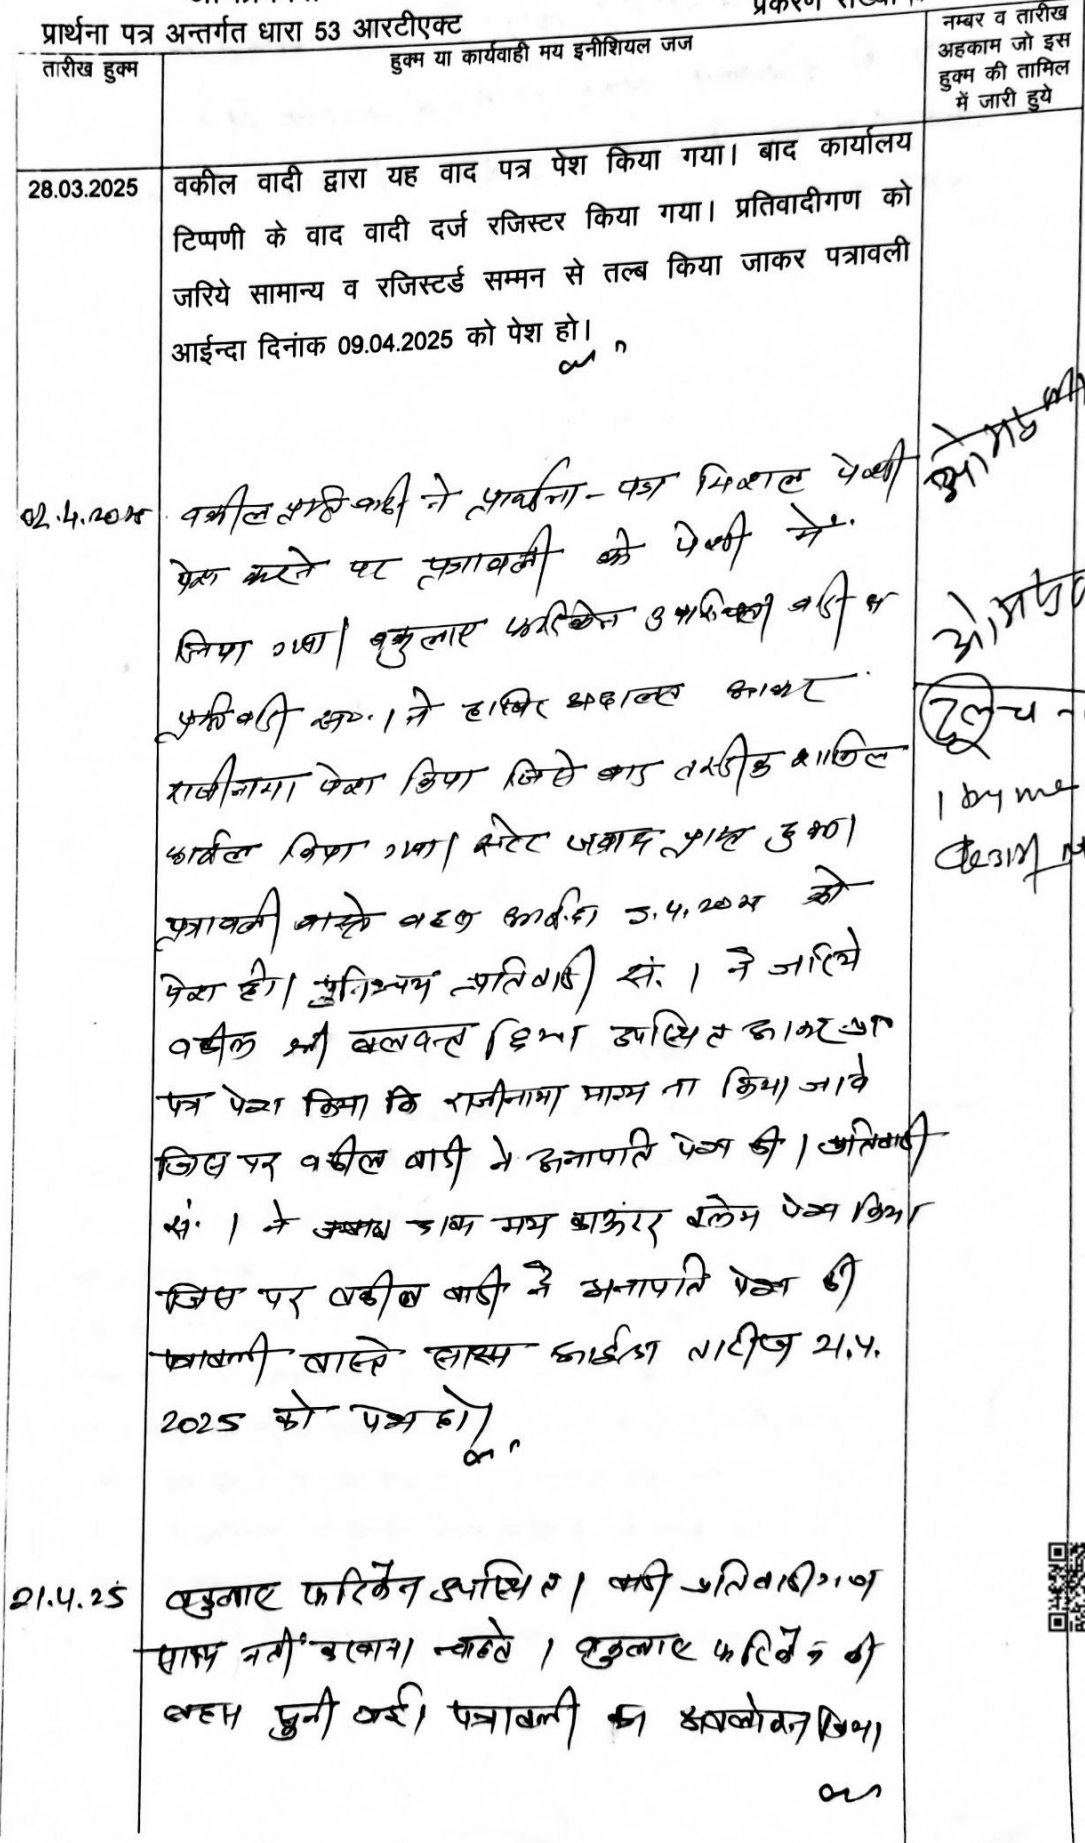 प्रार्थना पत्र अन्तर्गत धारा 53 आरटीएक्ट
तारीख हुक्म
हुक्म या कार्यवाही मय इनीशियल जज
नम्बर व तारीख
अहकाम जो इस
हुक्म की तामिल
में जारी हुये
28.03.2025
वकील वादी द्वारा यह वाद पत्र पेश किया गया। बाद कार्यालय
टिप्पणी के वाद वादी दर्ज रजिस्टर किया गया। प्रतिवादीगण को
जरिये सामान्य व रजिस्टर्ड सम्मन से तल्ब किया जाकर पत्रावली
आईन्दा दिनांक 09.04.2025 को पेश हो।
02.4.2025
वकील प्रतिवादी ने प्रार्थना-पत्र मिशल पेशी
पेश करने पर पत्रावली को पेशी में
लिया गया। वकुलाए फरिकेन उपस्थित। वादी व
प्रतिवादी सं. 1 ने हाजिर अदालत आकर
राजीनामा पेश किया जिसे बाद तस्दीक शामिल
किया गया। स्टेट जवाब प्राप्त हुआ।
पत्रावली वास्ते बहस आईन्दा को
पेश हो। प्रतिवादी सं. 1 ने जरिये
वकील श्री बलवन्त उपस्थित आकर
पत्र पेश किया कि राजीनामा मान्य ना किया जावे
जिस पर वकील वादी ने अनापति पेश की। प्रतिवादी
सं. 1 ने मय काउंटर क्लेम पेश किया
जिस पर वकील वादी ने अनापति पेश की
पत्रावली वास्ते साक्ष्य आईन्दा तारीख 21.4.
2025 को पेश हो।
21.4.25
वकुलाए फरिकेन उपस्थित। वादी प्रतिवादीगण
साक्ष्य नहीं करवाना चाहते। वकुलाए फरिकेन की
बहस सुनी गई। पत्रावली का अवलोकन किया